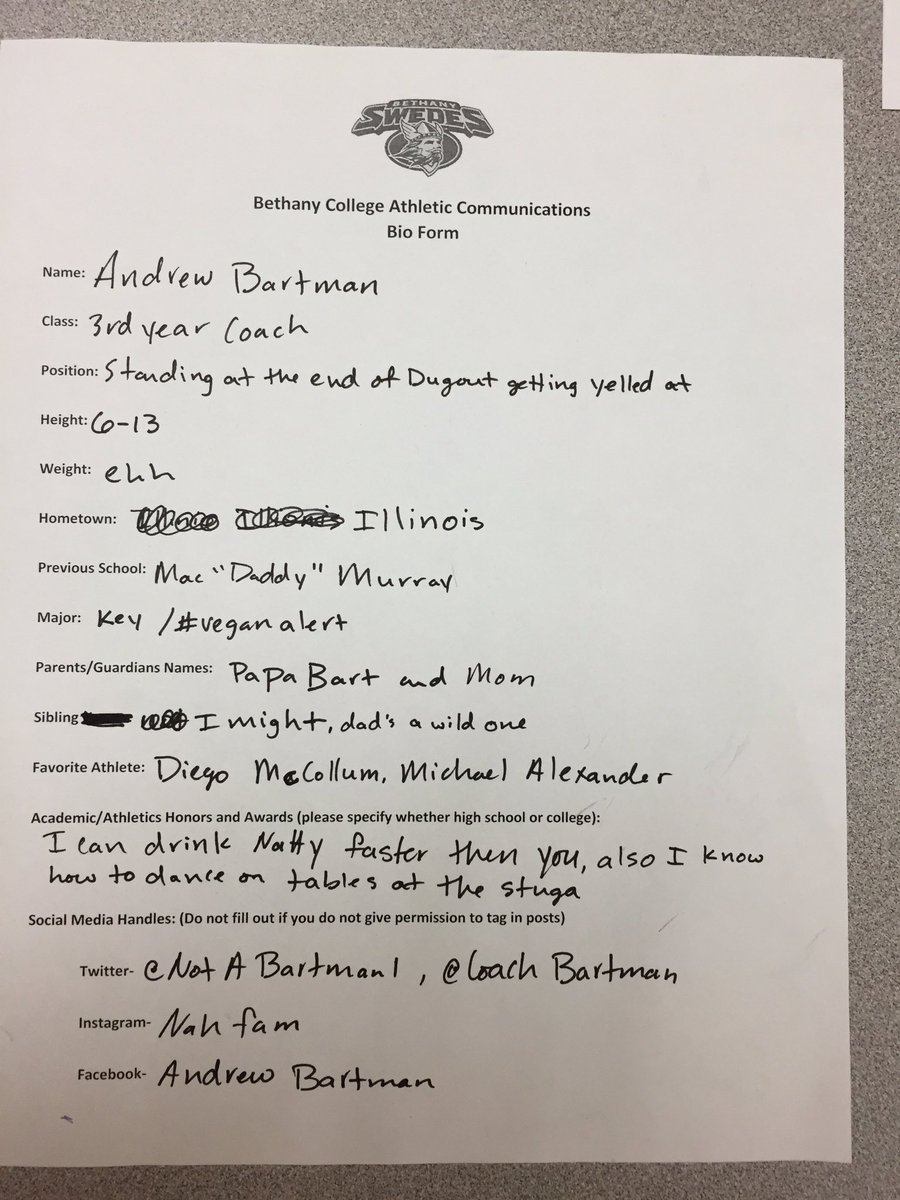 BETHANY
SWEDES
Bethany College Athletic Communications
Bio Form
Name: Andrew Bartman
Class: 3rd year Coach
Position: Standing at the end of Dugout getting yelled at
Height: 6-13
Weight: ehh
Hometown: Illinois
Previous School: Mac "Daddy" Murray
Major: Key / #veganalert
Parents/Guardians Names: Papa Bart and Mom
Sibling I might, dad's a wild one
Favorite Athlete: Diego McCollum, Michael Alexander
Academic/Athletics Honors and Awards (please specify whether high school or college):
I can drink Natty faster then you, also I know
how to dance on tables at the stuga
Social Media Handles: (Do not fill out if you do not give permission to tag in posts)
Twitter- @NotABartman1, @Coach Bartman
Instagram- Nah fam
Facebook- Andrew Bartman